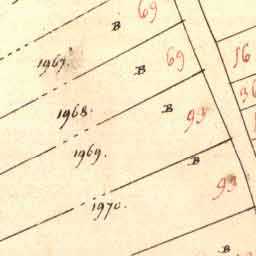 B 69
1967. B 69
16
1968. B 93
1969.
B 93
1970.
B